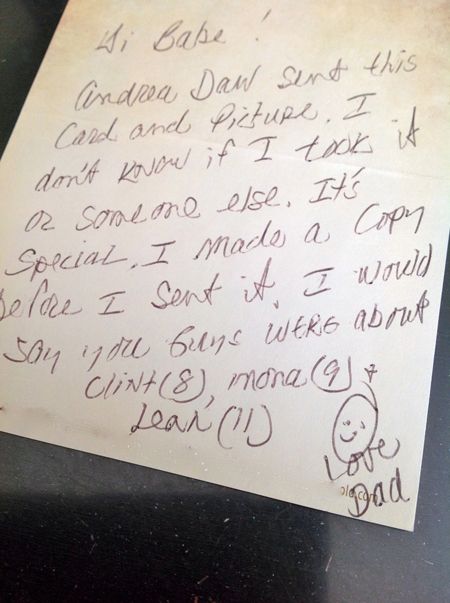 Hi Babe!
Andrea Daw sent this
Card and Picture. I
don't know if I took it
or someone else. It's
Special. I made a copy
before I sent it. I would
say you guys were about
Clint(8), mona(9) +
Leah (11)
Love
Dad